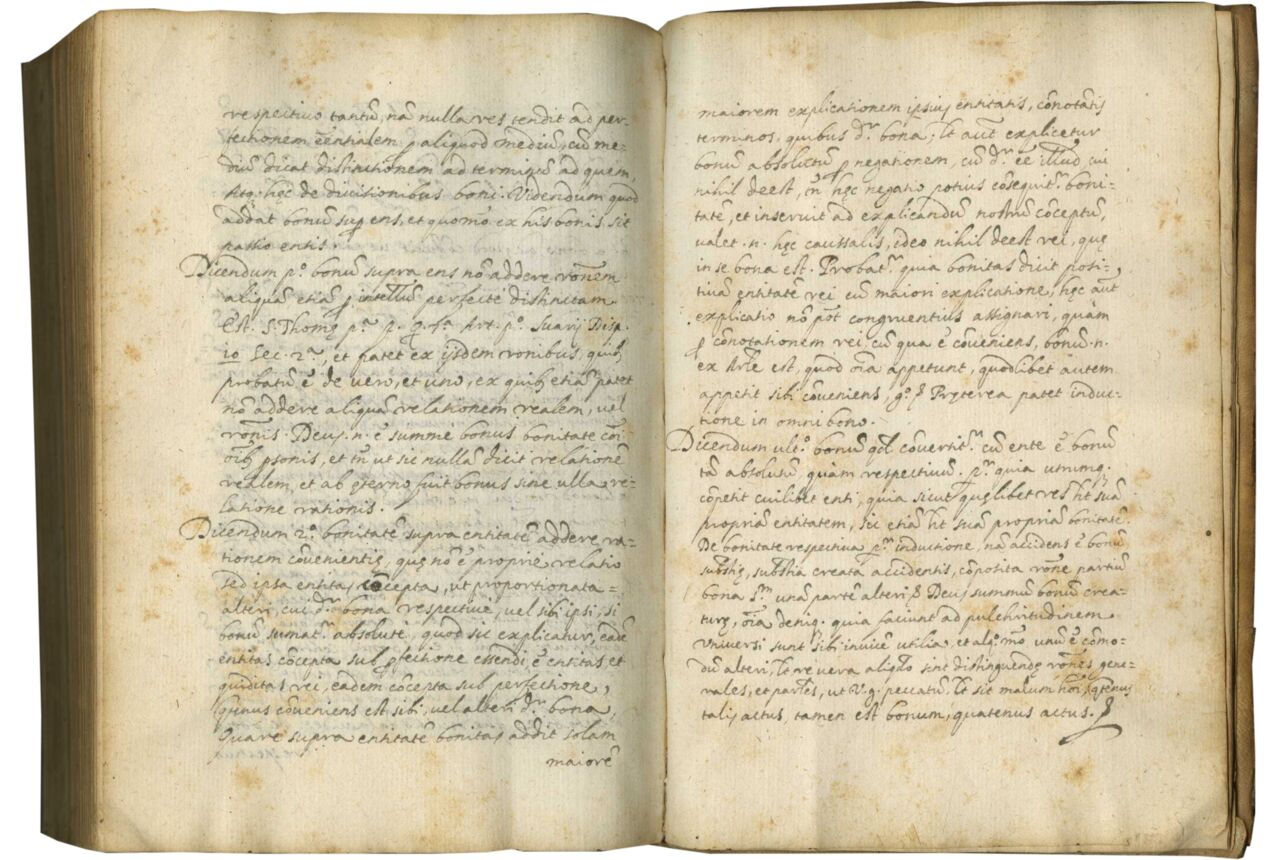 respectivo tantũ, nã nulla res tendit ad per-
fectionem eẽntialem p aliquod mediũ, cũ me-
diũ dicat distinctionem ad terminũ ad quem,
Atq. hęc de divisionibus boni. Videndum quod
addat bonũ sup ens, et quomõ ex his bonis sit
passio entis.
Dicendum p.º bonũ supra ens nõ addere rõnem
aliquã etiã p intellũm perfecte distinctam
Est. S. Thomę p.ª p. q. 5.ª Art. p.º Suarij Disp.
10 Sec. 2.ª, et patet ex ijsdem rõnibus, quibꝫ
probatũ ẽ de vero, et uno, ex quibꝫ etiã patet
nõ addere aliquã relationem realem, vel
rõnis. Deus .n. ẽ summe bonus bonitate cõi
oĩbꝫ psonis, et tñ ut sic nullã dicit relationẽ
realem, et ab ęterno fuit bonus sine ulla re-
latione rationis.
Dicendum 2.º bonitatẽ supra entitatẽ addere ra-
tionem cõvenientię, quę nõ ẽ proprie relatio
sed ipsa entitas cõcepta, ut proportionata
alteri, cui d.r bona respective, vel sibi ipsi, si
bonũ sumat.r absolute, quod sic explicatur, eadẽ
entitas cõcepta sub pfectione essendi ẽ entitas et
quidditas rei, eadem cõcepta sub perfectione,
quenus cõveniens est sibi, vel alteri d.r bona,
Quare supra entitatẽ bonitas addit solam
maiorẽ
maiorem explicationem ipsius entitatis, cõnotatis
terminos, quibus d.r bona; lt aũt explicetur
bonũ absolutũ p negationem, cũ d.r eẽ illud, cui
nihil deest, tñ hęc negatio potius cõsequit.r boni-
tatẽ, et inservit ad explicandũ nostrũ cõceptũ,
valet .n. hęc caussalis, ideo nihil deest rei, quę
in se bona est. Probat.r quia bonitas dicit posi-
tivã entitatẽ rei cũ maiori explicatione, hęc aũt
explicatio nõ põt congruentius assignari, quàm
p cõnotationem rei, cũ qua ẽ cõveniens, bonũ .n.
ex Arle est, quod oĩa appetunt, quodlibet autem
appetit sibi cõveniens, g.º & Pręterea patet induc-
tione in omni bono.
Dicendum ult.º bonũ qdl cõvertit.r cũ ente ẽ bonũ
tã absolutũ, quàm respectivũ. p.m quia utrumq.
cõpetit cuilibet enti, quia sicut quęlibet res ht suã
propriã entitatem, sic etiã ht suã propriã bonitatẽ.
De bonitate respectiva p.m inductione, nã accidens ẽ bonũ
substię, substia creata accidentis, cõposita rõne partiũ
bona s.m unã partẽ alteri & Deus summũ bonũ crea-
turę, oĩa deniq. quia faciunt ad pulchritudinem
Universi sunt sibi invicẽ utilia, et alq.º mõ unũ ẽ cõmo-
dũ alteri, lt re vera aliqñ sint distinguendę rõnes gene-
rales, et partles, ut v.g. peccatũ lt sit malum hõi, qtenus
talis actus, tamen est bonum, quatenus actus. &